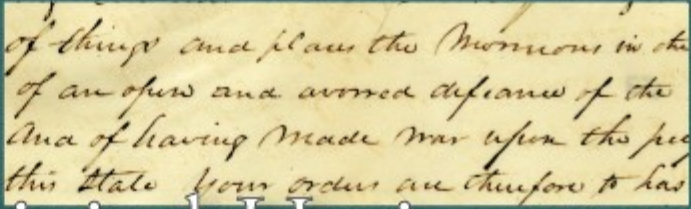 of things and places the Mormons in the
of an open and avowed defiance of the
and of having made war upon the peo
this State Your orders are therefore to has